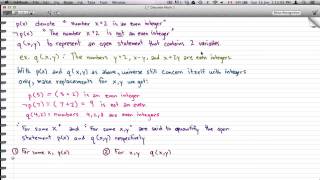 p(x) denote "number x+2 is an even integer"
¬p(x) "The number x+2 is not an even integer"
q(x,y) to represent an open statement that contains 2 variables.
ex. q(x,y): The numbers y+2, x-y, and x+2y are even integers
With p(x) and q(x,y) as above, universe still concern itself with integers
only, make replacements for x,y we get:
p(5) = (5+2) is an even integer
¬p(7) = (7+2) = 9 is not an even
q(4,2) = numbers 4, 2, 8 are even integers
"For some x" and "For some x,y" are said to quantify the open
statement p(x) and q(x,y) respectively
① For some x, p(x) ② For x,y q(x,y)